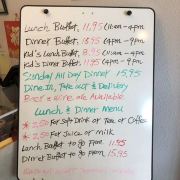 Lunch Buffet, 11.95 (11am-4pm
Dinner Buffet, 15.95 (4pm-9pm
Kid's Lunch Buffet, 8.95 (11am-4pm
Kid's Dinner Buffet, 11.95 (4pm-9pm
Sunday All Day Dinner 15.95
Dine In, Take out & Delivery
Beer & Wine are Available
Lunch & Dinner Menu
For Soft Drink or Tea or Coffee
For Juice or milk
Lunch Buffet to go From 11.95
Dinner Buffet to go From 15.95